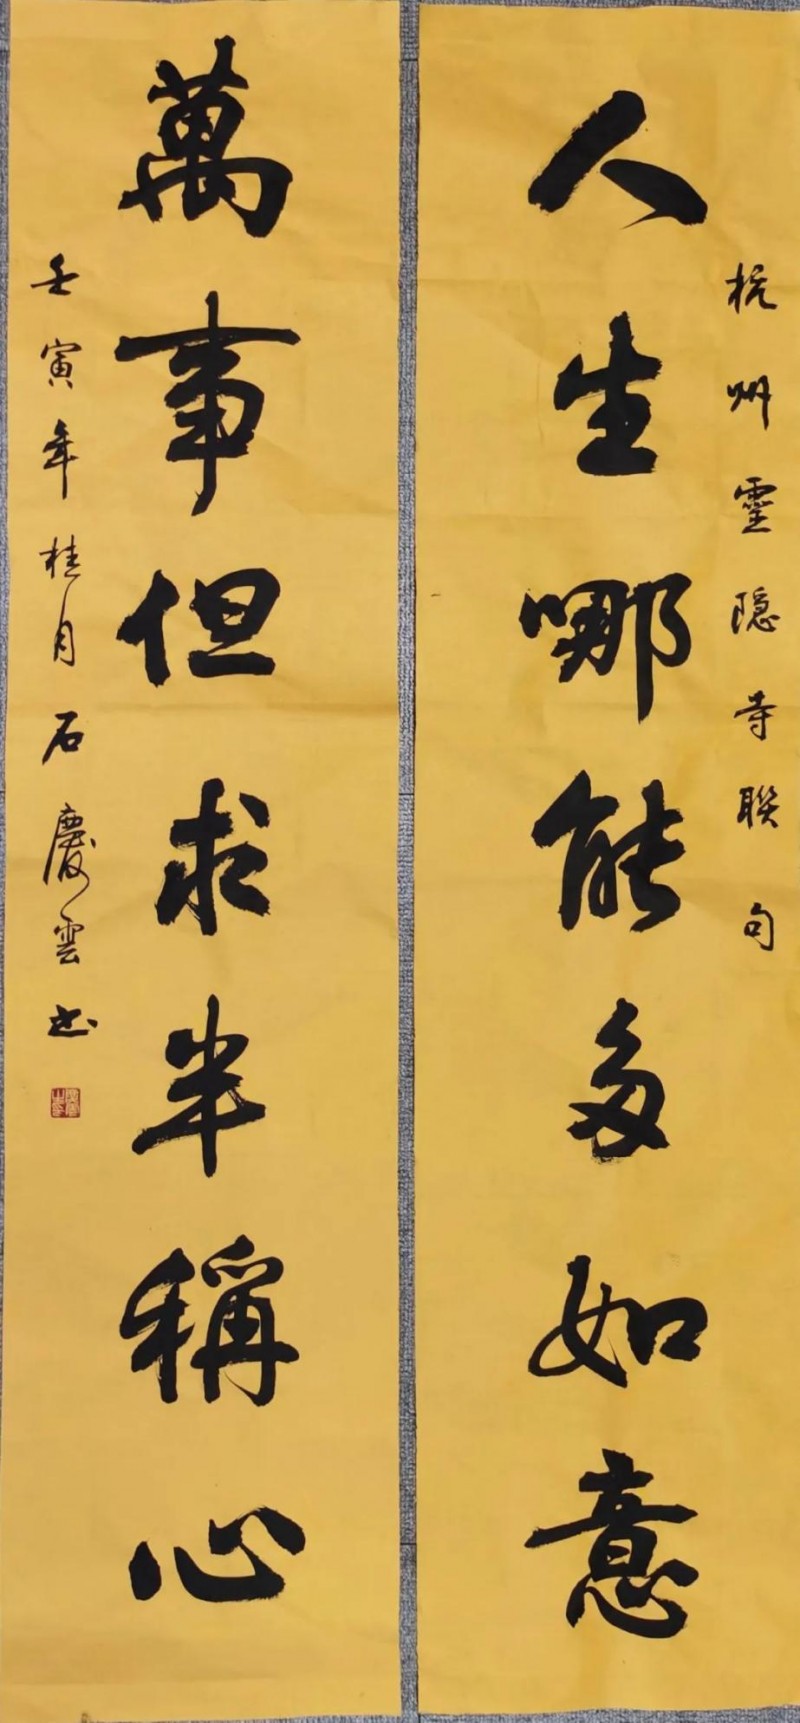 杭州靈隐寺聯句
人生哪能多如意
萬事但求半稱心
壬寅年桂月石慶雲书